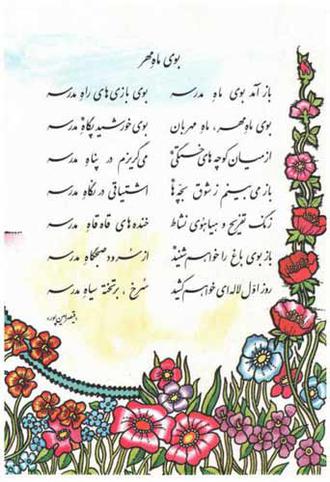 بوی ماه مهر
باز آمد بوی ماه مدرسه بوی بازی‌های راه مدرسه
بوی ماه مهر، ماه مهربان بوی خورشید پگاه مدرسه
از میان کوچه‌های خستگی می‌گریزم در پناه مدرسه
باز می‌بینم ز شوق بچّه‌ها اشتیاقی در نگاه مدرسه
زنگ تفریح و هیاهوی نشاط خنده‌های قاه قاه مدرسه
باز بوی باغ را خواهم شنید از سرود صبحگاه مدرسه
روز اوّل لاله‌ای خواهم کشید سُرخ، بر تخته سیاه مدرسه
قیصر امین‌پور